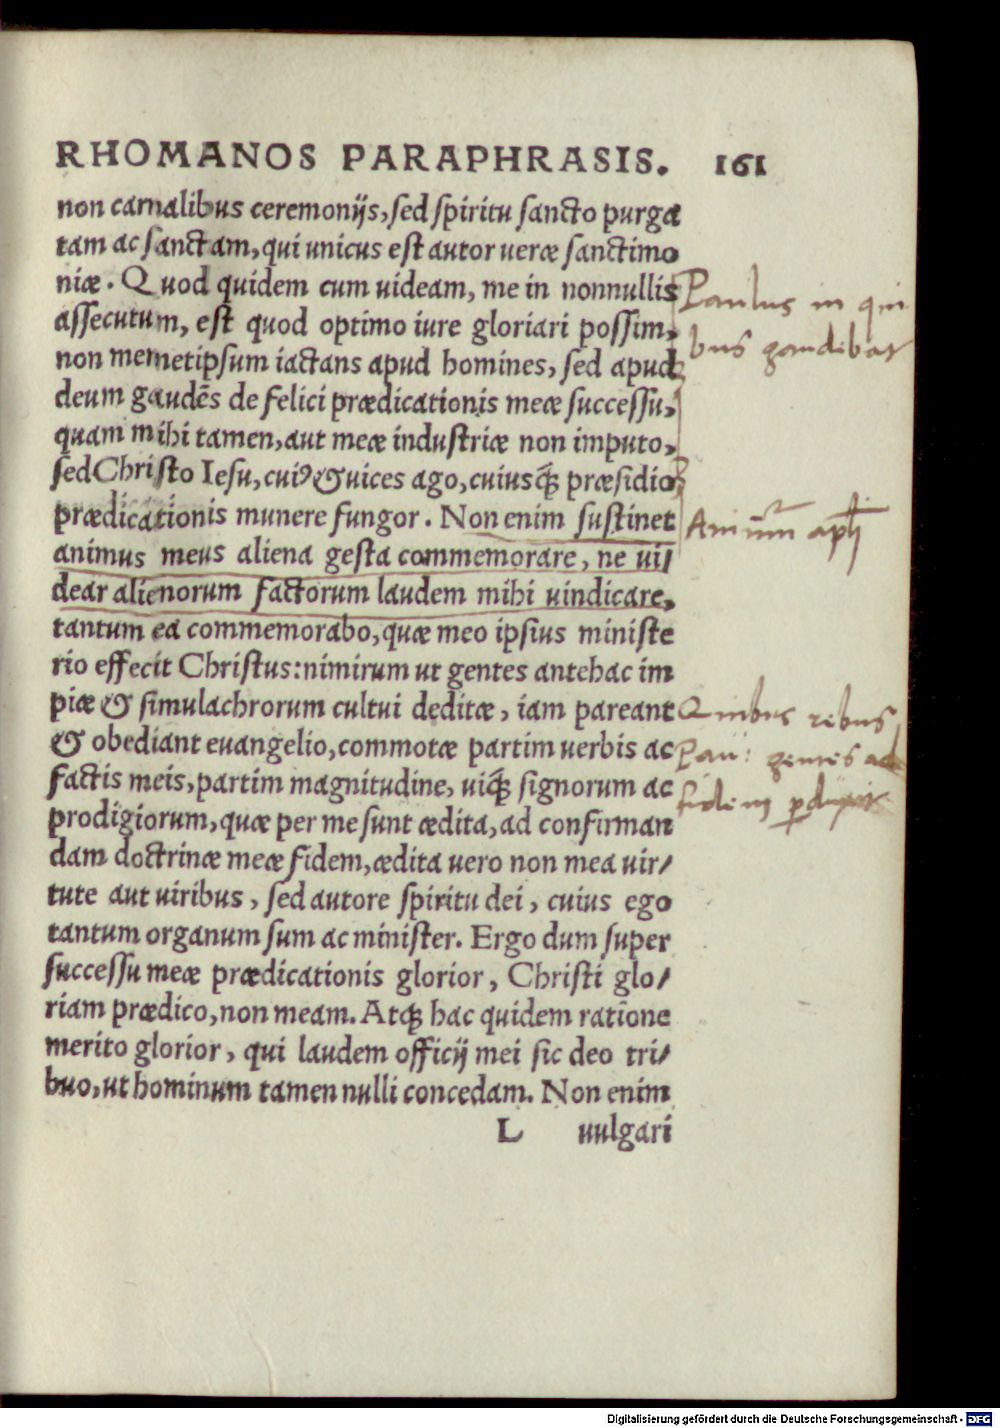 RHOMANOS PARAPHRASIS. 161
non carnalibus ceremonijs, sed spiritu sancto purga
tam ac sanctam, qui unicus est autor veræ sanctimo
niæ. Quod quidem cum uideam, me in nonnullis
assecutum, est quod optimo iure gloriari possim,
non memetipsum iactans apud homines, sed apud
deum gaudẽs de felici prædicationis meæ successu,
quam mihi tamen, aut meæ industriæ non imputo,
sed Christo Iesu, cuiꝰ & uices ago, cuiusq́ꝫ præsidio
prædicationis munere fungor. Non enim sustinet
animus meus aliena gesta commemorare, ne vi/
dear alienorum factorum laudem mihi uindicare,
tantum ea commemorabo, quæ meo ipsius ministe
rio effecit Christus: nimirum ut gentes antehac im
piæ & simulachrorum cultui deditæ, iam pareant
& obediant euangelio, commotæ partim uerbis ac
factis meis, partim magnitudine, uiq́ꝫ signorum ac
prodigiorum, quæ per me sunt ædita, ad confirman
dam doctrinæ meæ fidem, ædita uero non mea uir/
tute aut uiribus, sed autore spiritu dei, cuius ego
tantum organum sum ac minister. Ergo dum super
successu meæ prædicationis glorior, Christi glo/
riam prædico, non meam. Atqꝫ hac quidem ratione
merito glorior, qui laudem officij mei sic deo tri/
buo, ut hominum tamen nulli concedam. Non enim
L uulgari
Paulus in qui
bus gaudebat
Quibus rebus
Pau: gentes ad
fidem
Digitalisierung gefördert durch die Deutsche Forschungsgemeinschaft - DFG